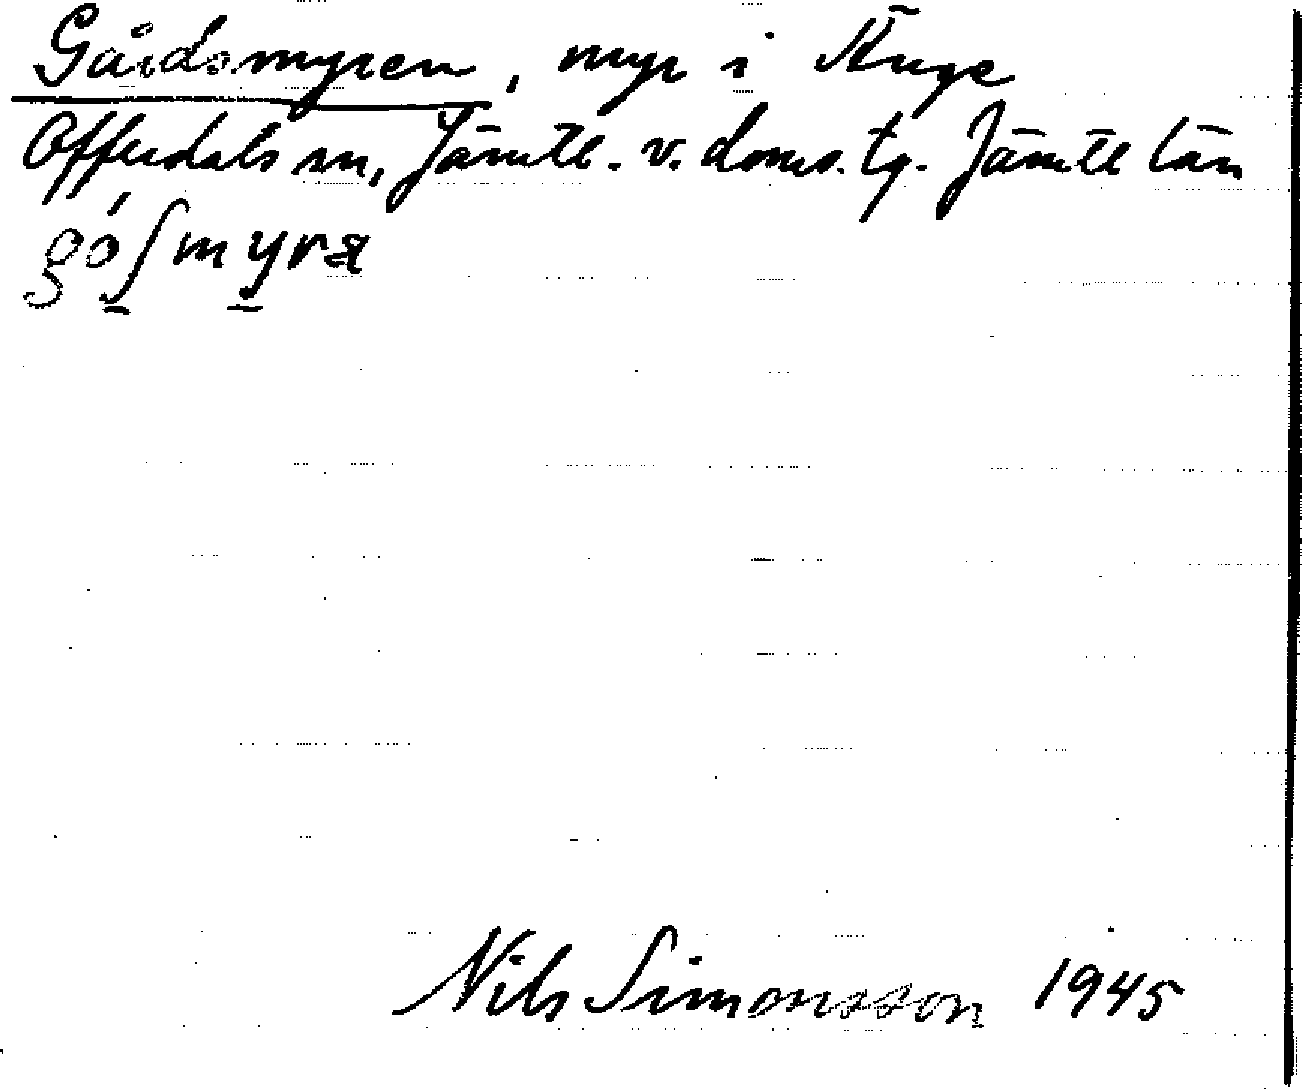 Gårdsmyren, myr i Änge
Offerdals sn, Jämtl. v. doms. tg. Jämtl län
gó̱ʃmy̱ra
Nils Simonsson 1945